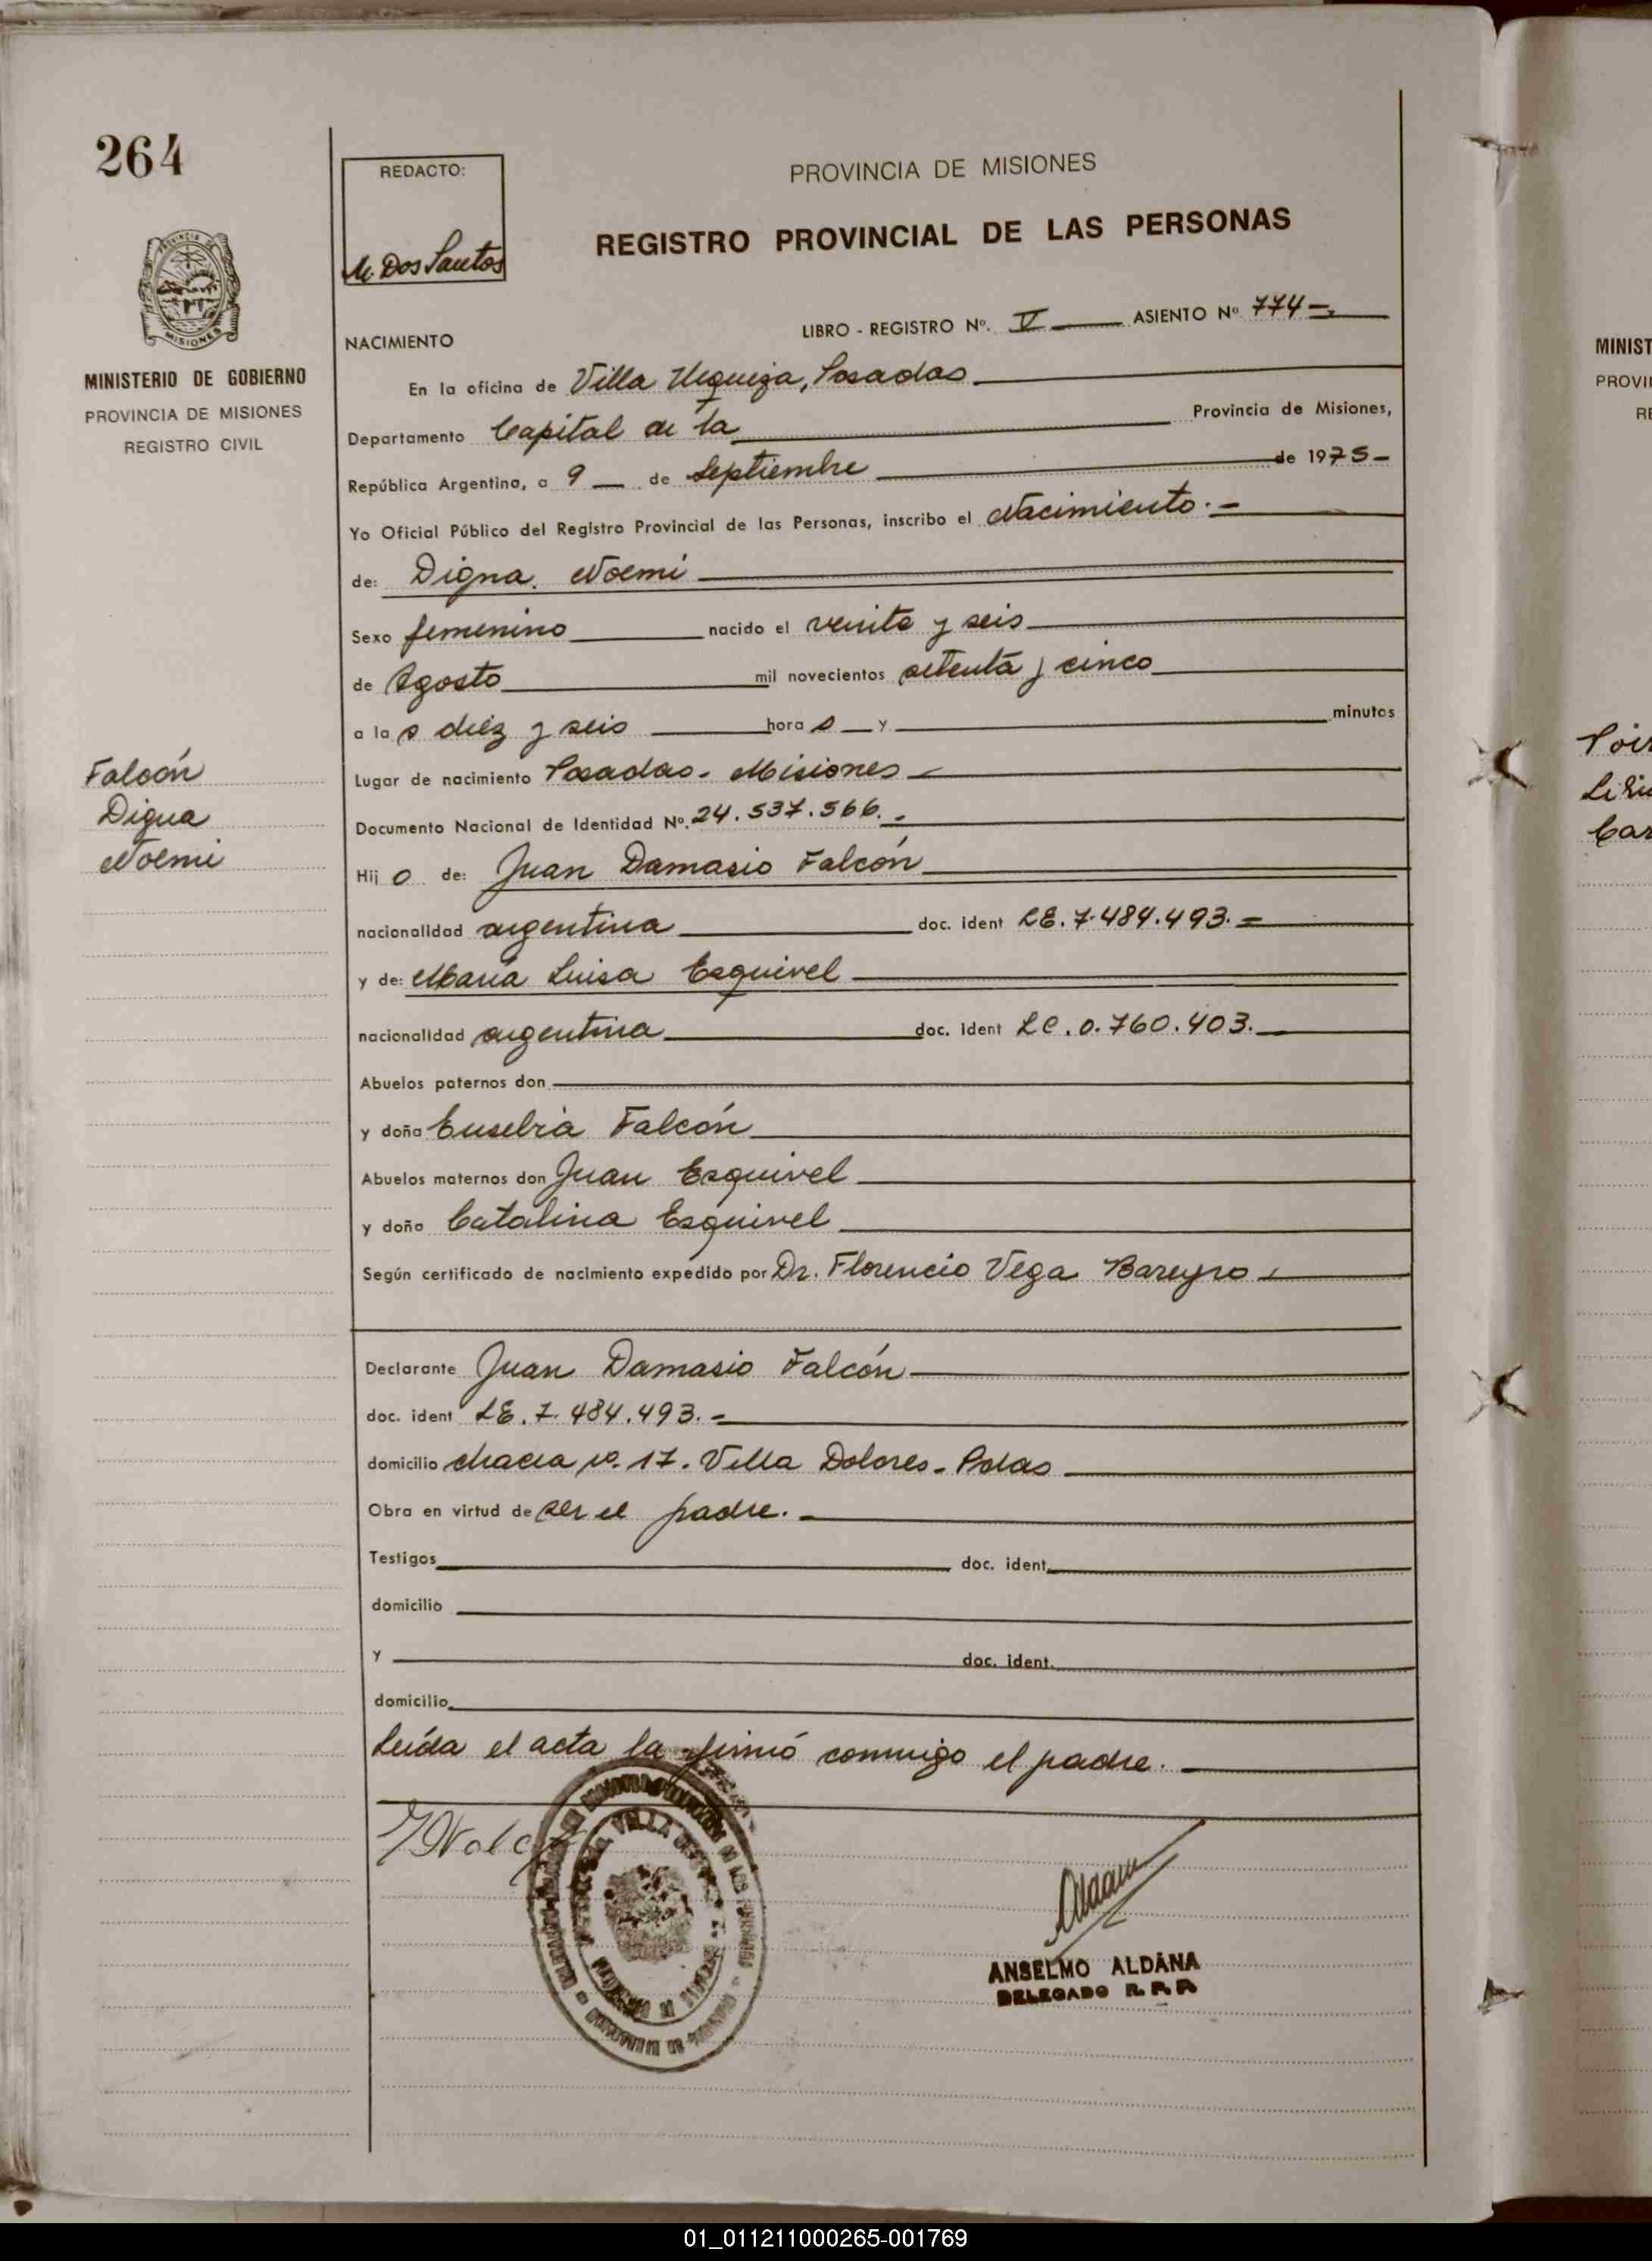 264
REDACTO:
M. Dos Santos
PROVINCIA DE MISIONES
REGISTRO PROVINCIAL DE LAS PERSONAS
PROVINCIA DE
MISIONES
MINISTERIO DE GOBIERNO
PROVINCIA DE MISIONES
REGISTRO CIVIL
LIBRO - REGISTRO Nº. V ASIENTO Nº 774
NACIMIENTO
En la oficina de Villa Urquiza, Posadas
Departamento Capital de la Provincia de Misiones,
República Argentina, a 9 de Septiembre de 1975
Yo Oficial Público del Registro Provincial de las Personas, inscribo el Nacimiento.
de: Digna Noemi
Sexo femenino nacido el veinte y seis
de Agosto mil novecientos setenta y cinco
a las diez y seis horas y minutos
Lugar de nacimiento Posadas - Misiones
Falcón
Digna
Noemi
Documento Nacional de Identidad Nº. 24.537.566.
Hijo de: Juan Damasio Falcón
nacionalidad argentina doc. ident LE. 7.484.493.
y de: Maria Luisa Esquivel
nacionalidad argentina doc. ident LC. 0.760.403.
Abuelos paternos don
y doña Eusebia Falcón
Abuelos maternos don Juan Esquivel
y doña Catalina Esquivel
Según certificado de nacimiento expedido por Dr. Florencio Vega Bareyro
Declarante Juan Damasio Falcón
doc. ident LE. 7. 484.493.
domicilio chacra 17. Villa Dolores - Pdas
Obra en virtud de ser el padre.
Testigos doc. ident.
domicilio
y doc. ident.
domicilio
Leída el acta la firmó conmigo el padre.
VILLA
ANSELMO ALDANA
DELEGADO R. P. P.
MINIST
PROVI
RE
01_011211000265-001769